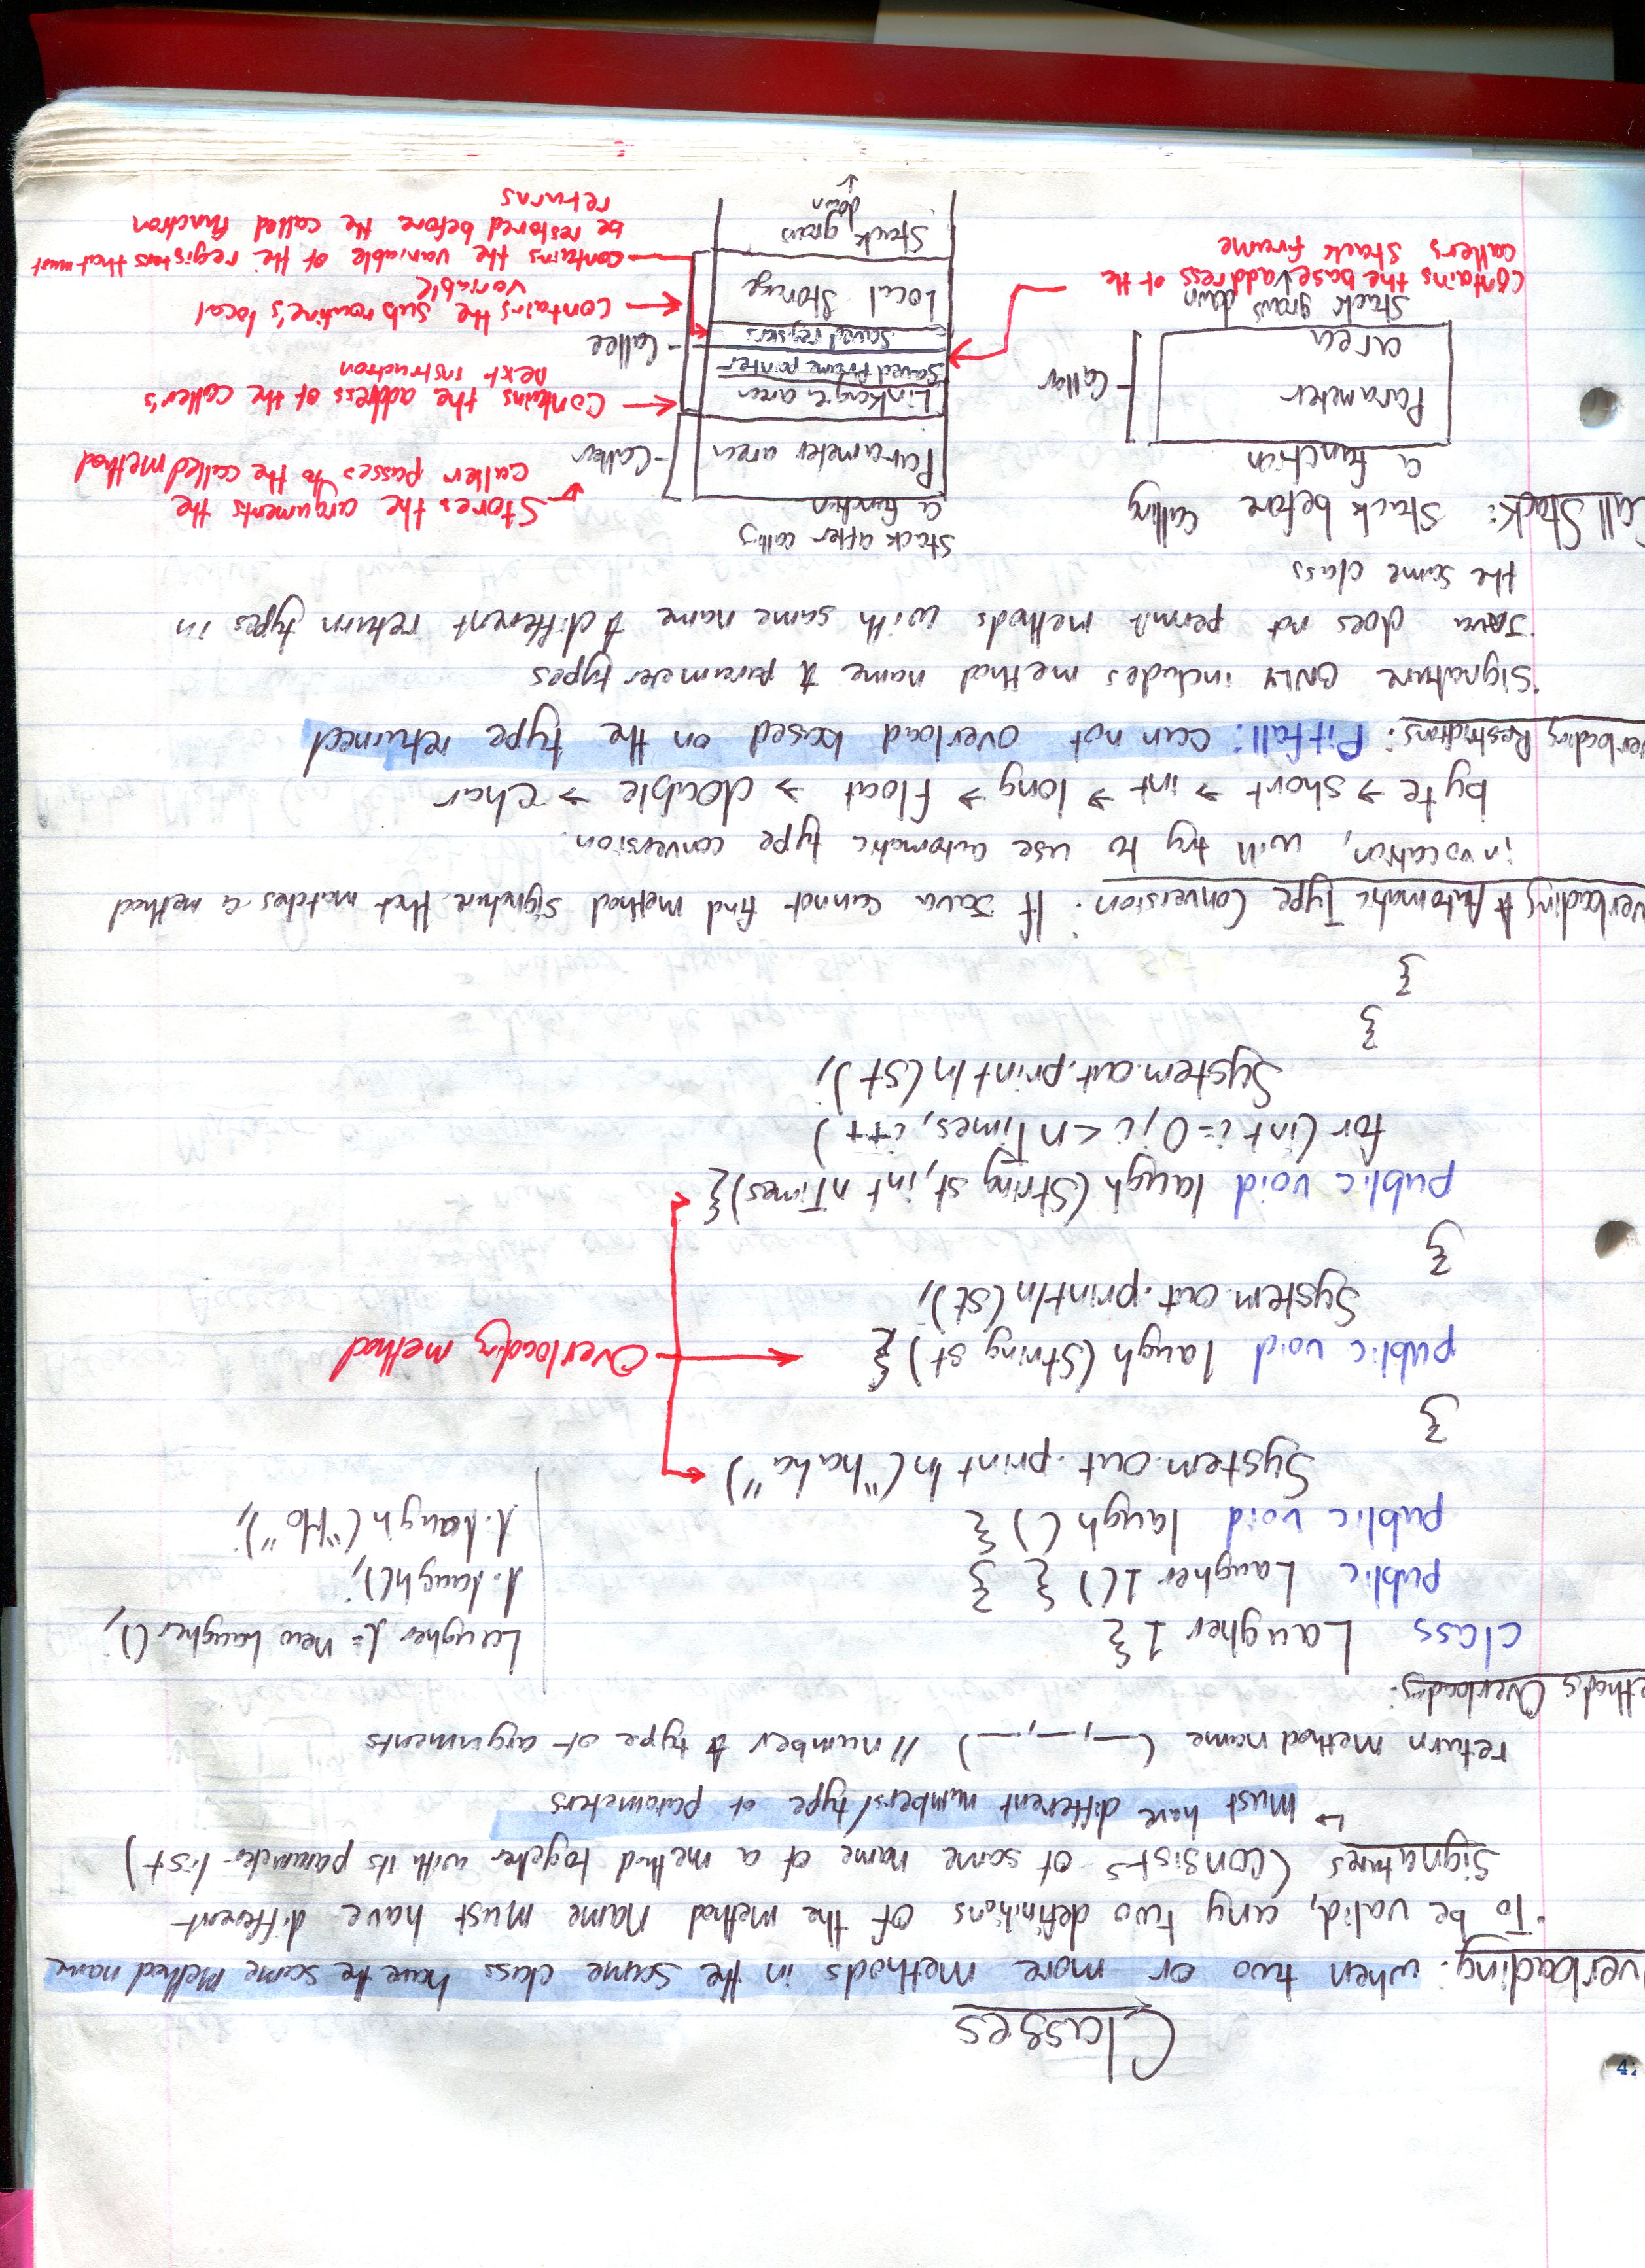 Classes
verloading: when two or more methods in the same class have the same method name
• To be valid, any two definitions of the method name must have different
signatures (consists of same name of a method together with its parameter list)
↳ must have different numbers/type of parameters
return method name (—,—,—) // number & type of arguments
ethods Overloading:
class Laugher1{
public Laugher1(){ }
public void laugh(){
System.out.println("haha")
}
public void laugh(String st){
System.out.println(st);
}
public void laugh(String st, int nTimes){
for(int i=0; i<nTimes; i++)
System.out.println(st);
}
}
Laugher l = new Laugher();
l.laugh();
l.laugh("Ho");
Overloading method
verloading & Automatic Type Conversion: If Java cannot find method signature that matches a method
invocation, will try to use automatic type conversion.
byte → short → int → long → float → double → char
verloading Restrictions: Pitfall: can not overload based on the type returned
• Signature ONLY includes method name & parameter types
• Java does not permit methods with same name & different return types in
the same class
Call Stack: Stack before calling
a function
Parameter
area
Caller
Stack grows down
Contains the base address of the
callers stack frame
Stack after calling
a function
Parameter area
Linkage area
Saved frame pointer
Saved registers
Local Storage
Stack grows
down
Caller
Callee
Stores the arguments the
caller passes to the called method
Contains the address of the caller's
next instruction
Contains the subroutine's local
variable
contains the variable of the registers that must
be restored before the called function
returns